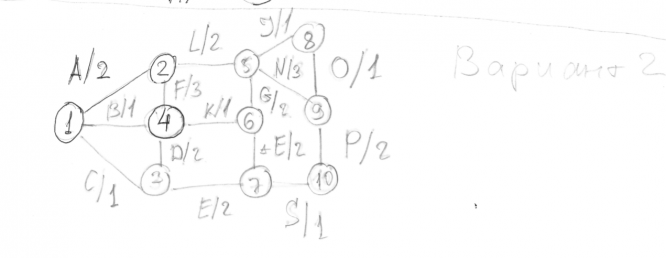 J/1
8
L/2
A/2
2
5
N/3
O/1
Вариант 2
F/3
B/1
G/2
K/1
1
4
6
9
D/2
E/2
P/2
C/1
3
7
10
E/2
S/1